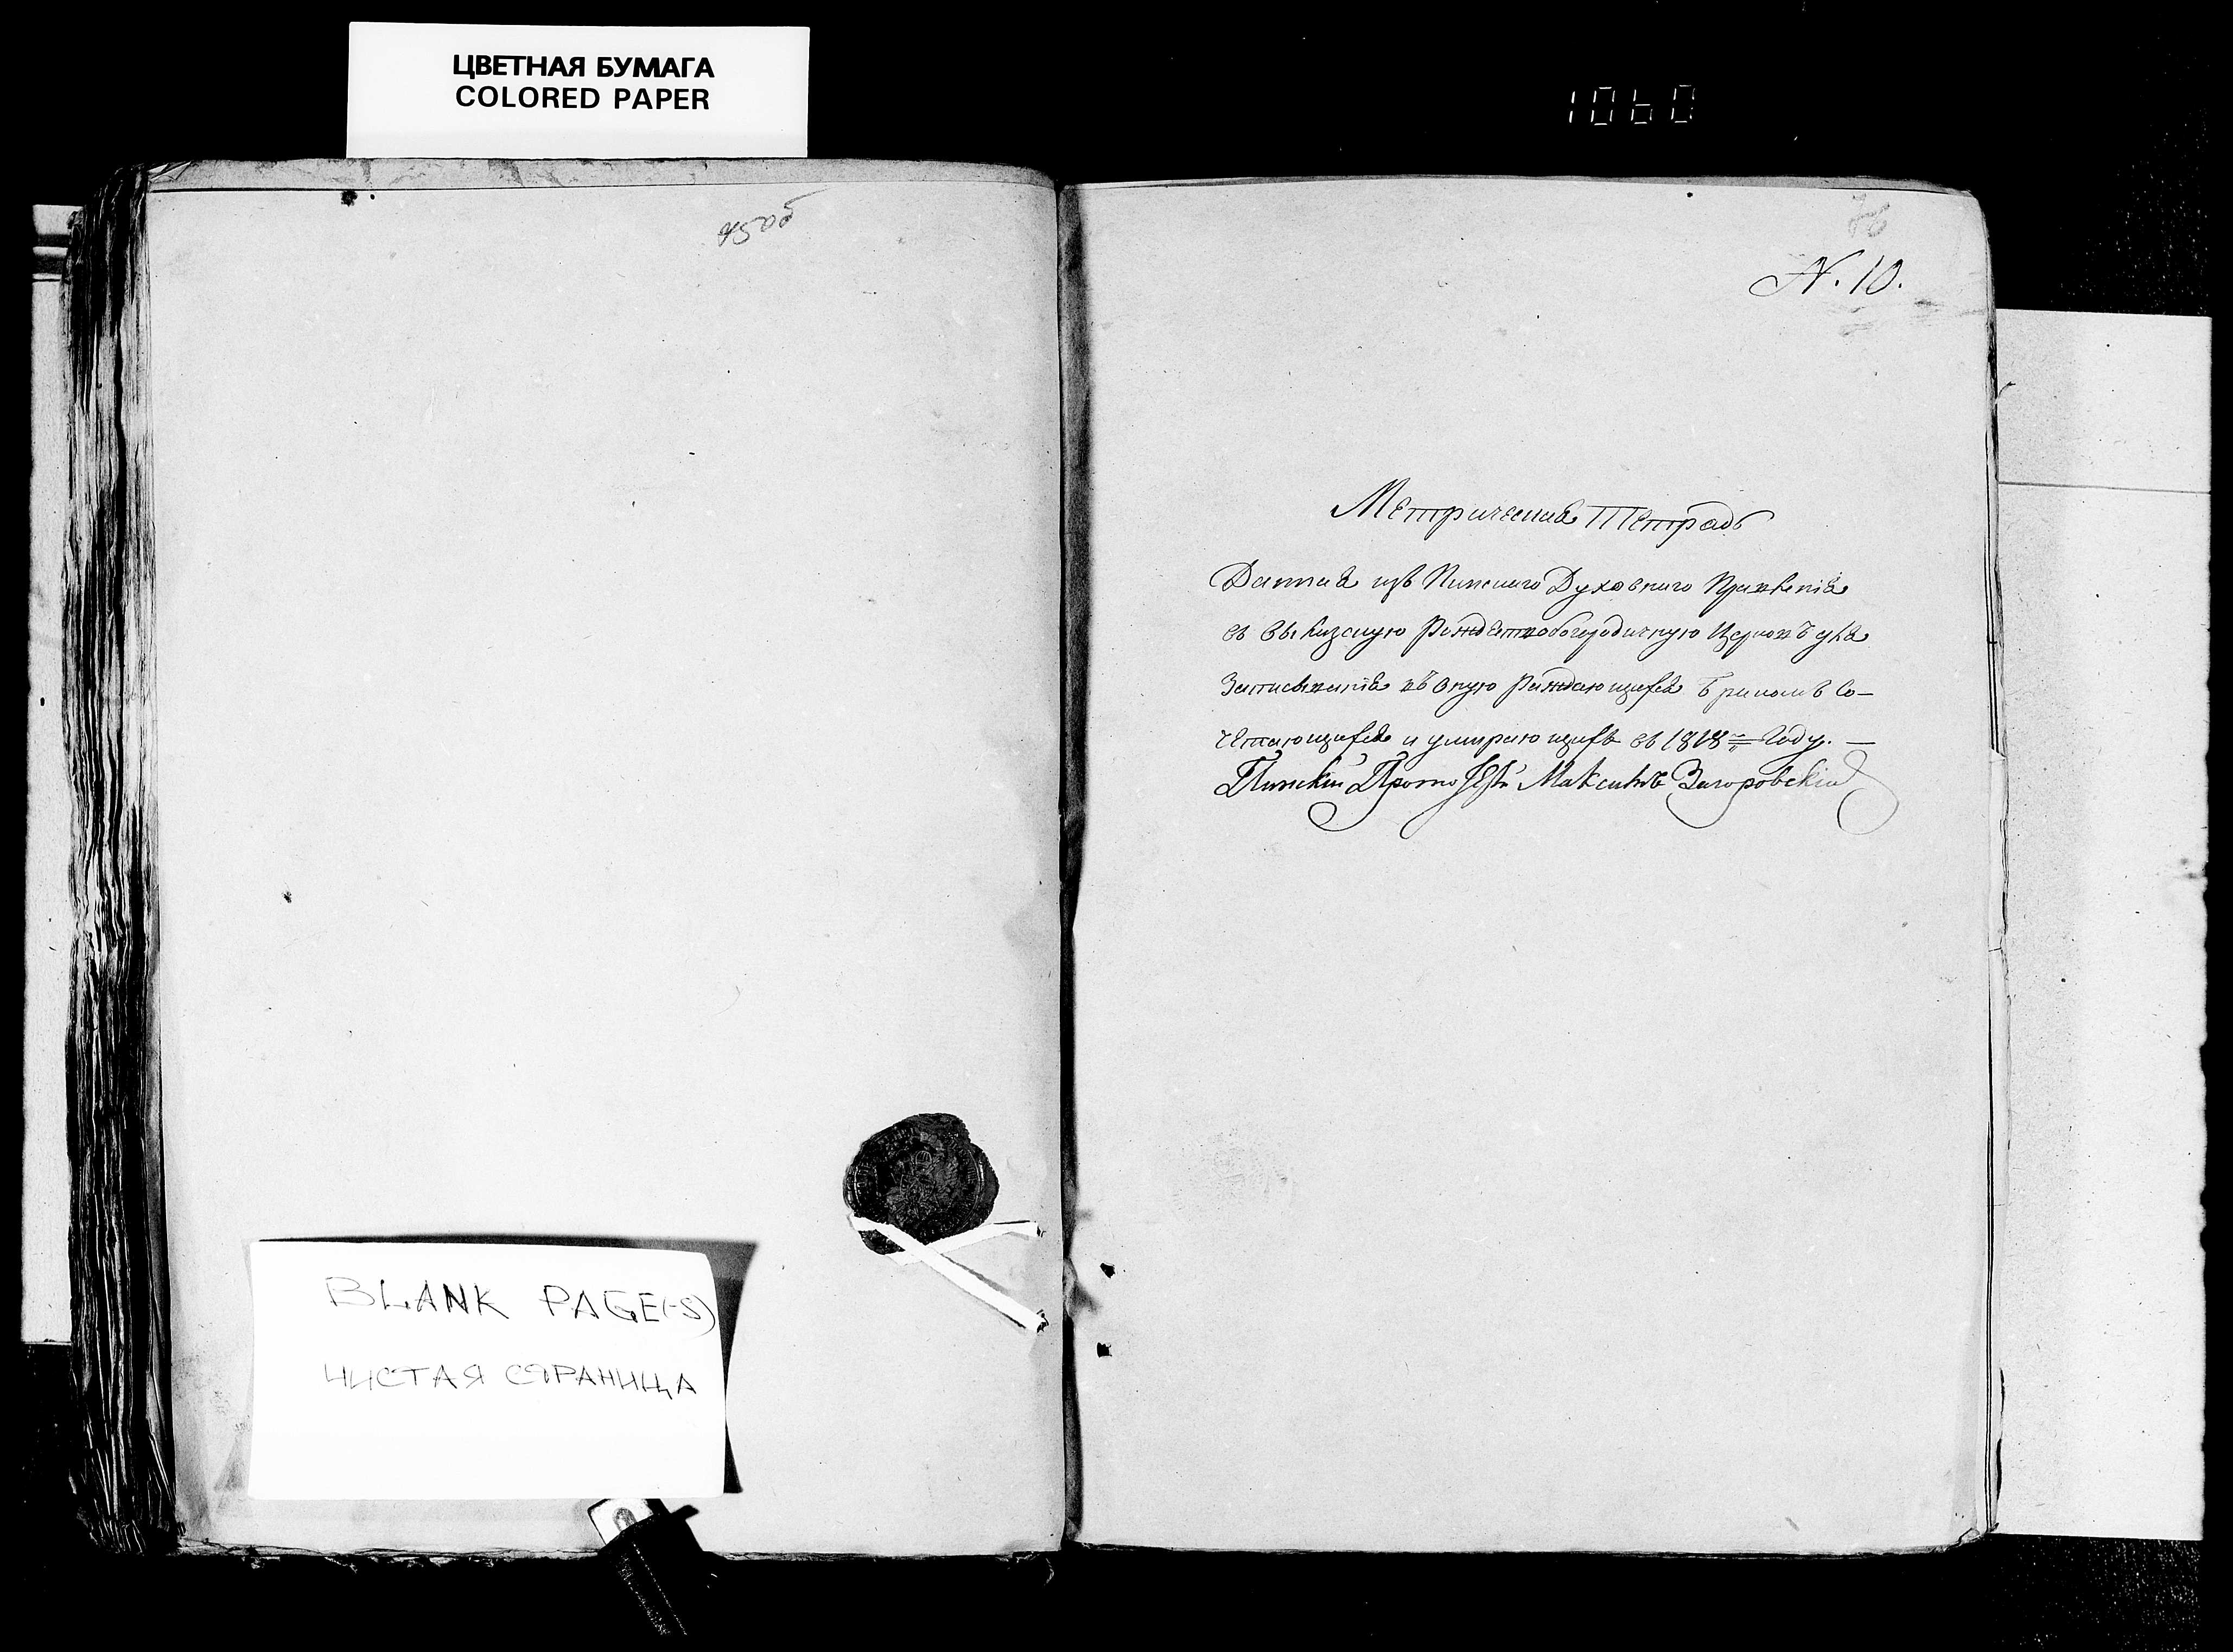 ЦВЕТНАЯ БУМАГА
COLORED PAPER
1060
N. 10.
Метрическая Тетрадь
Данная изъ Пинскаго Духовнаго Правленія
въ Рождествобогородичную Церковь для
Записыванія въ оную Раждающихся Бракомъ Со-
четающихся и умирающихъ въ 1818 = Году. —
Пинскій Протоіерей Максимъ Загоровскій
BLANK PAGE(-S)
ЧИСТАЯ СТРАНИЦА